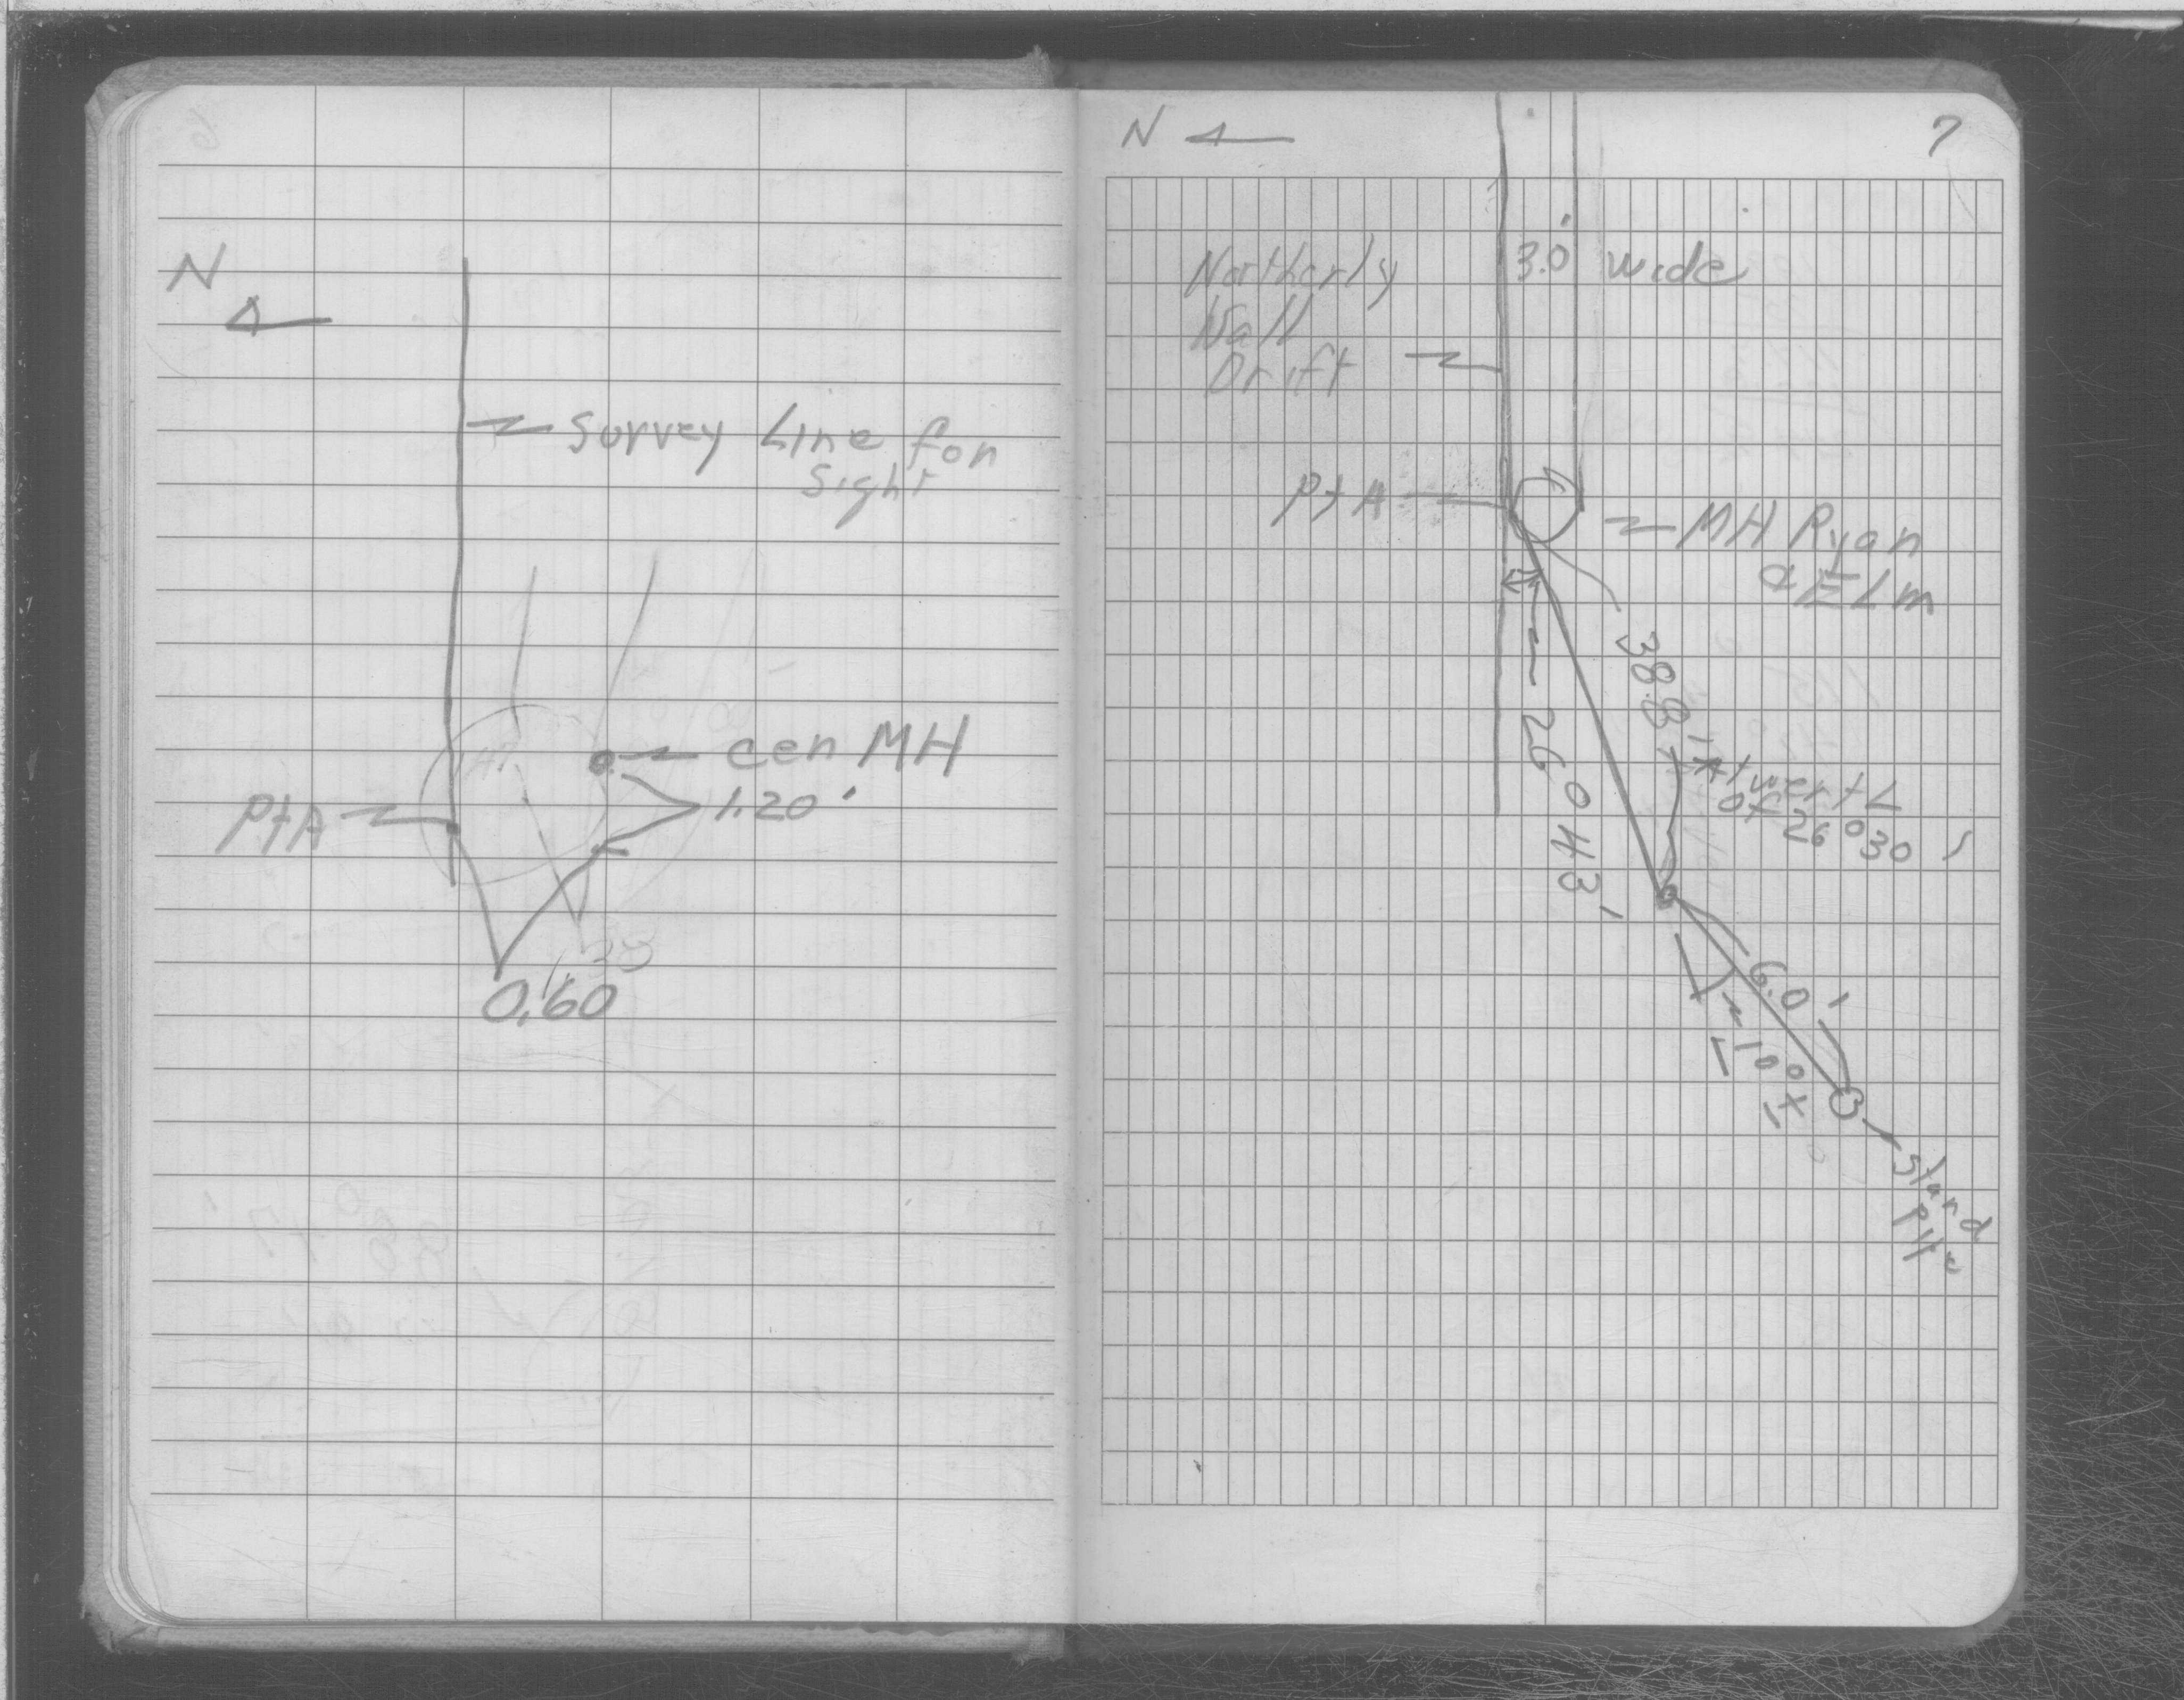 N
Survey Line for
Sight
cen MH
1.20'
Pt A
0.60
N
7
Northerly
Wall
Drift
3.0' wide
Pt A
MH Ryan
& ELm
26°43'
38.8'
At vert L
of 26°30'
6.0'
10°
Stand
Pipe